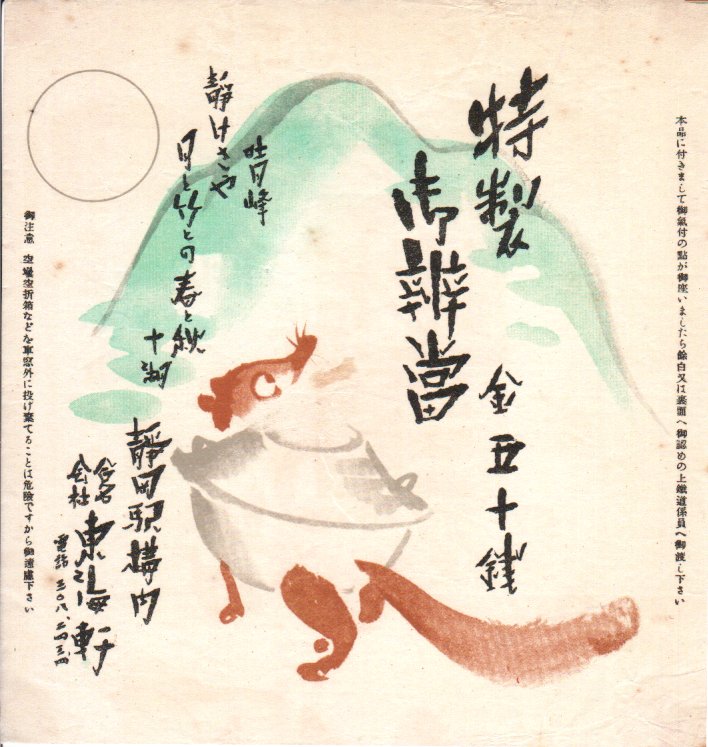 本品に付きまして御氣付の點が御座いましたら餘白又は裏面へ御認めの上鐵道係員へ御渡し下さい
特製
御辨當
金五十錢
吐月峰
靜けさや
月と竹との春と秋
十湖
靜岡駅構内
合名
会社
東海軒
御注意 空壜空折箱などを車窓外に投げ棄てることは危險ですから御遠慮下さい